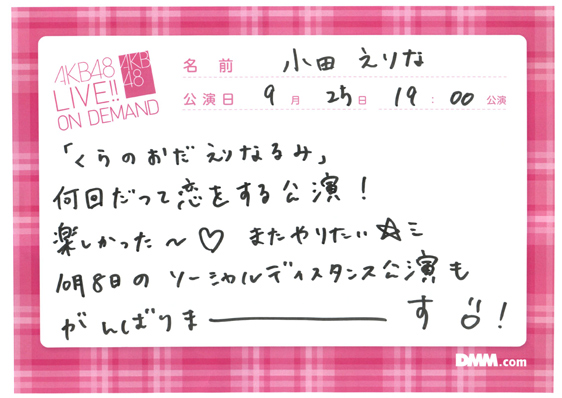 AKB48
LIVE!!
ON DEMAND
AKB
48
名前 小田えりな
公演日 9月 25日 19:00 公演
「くらのおだえりなるみ」
何回だって恋をする公演!
楽しかった〜♡ またやりたい☆ミ
10月8日のソーシャルディスタンス公演も
がんばりま―――す!
DMM.com